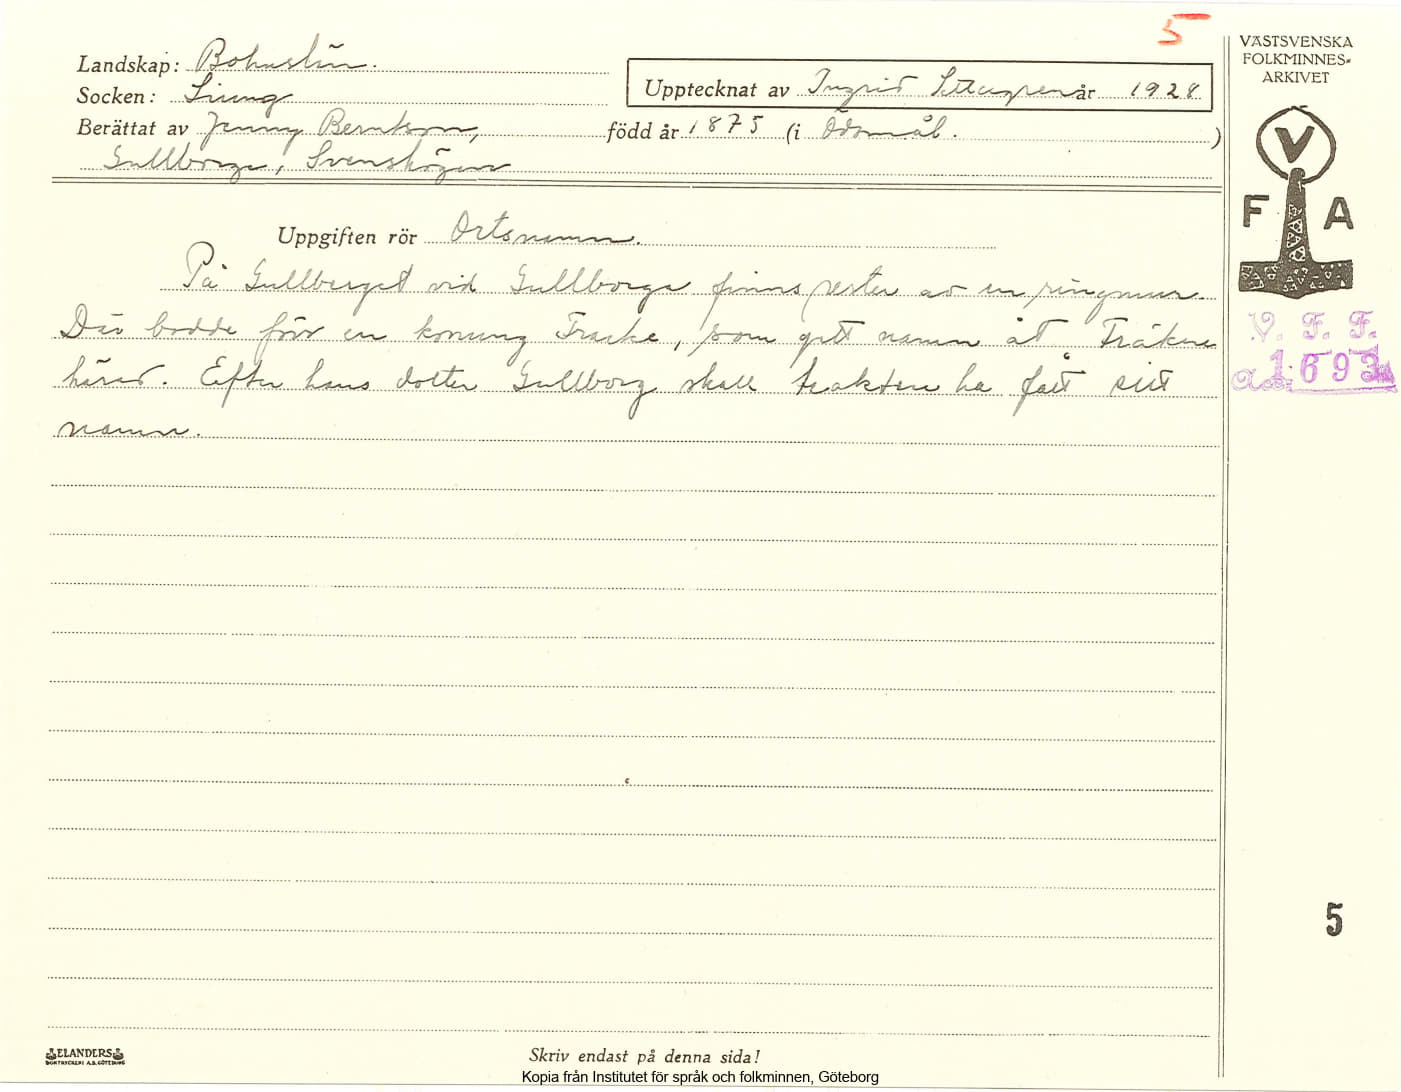 5
VÄSTSVENSKA
FOLKMINNES-
ARKIVET
Landskap: Bohuslän.
Socken: Ljung
Upptecknat av Ingrid år 1928
Berättat av Jenny Berntson, född år 1875 (i Ödsmål.)
Gullborga, Svenshögen
V
F A
Uppgiften rör Ortsnamn.
På Gullberget vid Gullborga finns rester av en ringmur.
Där bodde förr en konung Fracke, som gett namn åt Fräkne
härad. Efter hans dotter Gullborg skall trakten ha fått sitt
namn.
V. F. F.
Acc: 1693
5
ELANDERS
BOKTRYCKERI A.B. GÖTEBORG
Skriv endast på denna sida!
Kopia från Institutet för språk och folkminnen, Göteborg